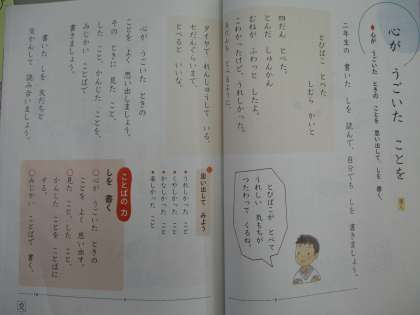 心が うごいた ことを
心が うごいた ときの ことを 思い出して、しを 書く
二年生の 書いた しを 読んで、自分でも しを 書きましょう。
とびばこ とべた
しむら かいと
四だん とべた。
とんだ しゅんかん
むねが ふわっと したよ。
こわかったけど、うれしかった。
タイヤで れんしゅうして いる。
七だんぐらいまで
とべると いいな。
とびばこが とべて
うれしい 気もちが
つたわって くるね。
心が うごいた ときの
ことを よく 思い出しましょう。
その ときに 見た こと、
した こと、かんじた ことを、
みじかい ことばで
書きましょう。
書いた しを 友だちと
交かんして 読み合いましょう。
思い出して みよう
・うれしかった こと
・くやしかった こと
・かなしかった こと
・楽しかった こと
ことばの 力
しを 書く
○心が うごいた ときの
ことを よく 思い出す。
○見た こと、した こと、
かんじた ことを ことばに
する。
○みじかい ことばで 書く。